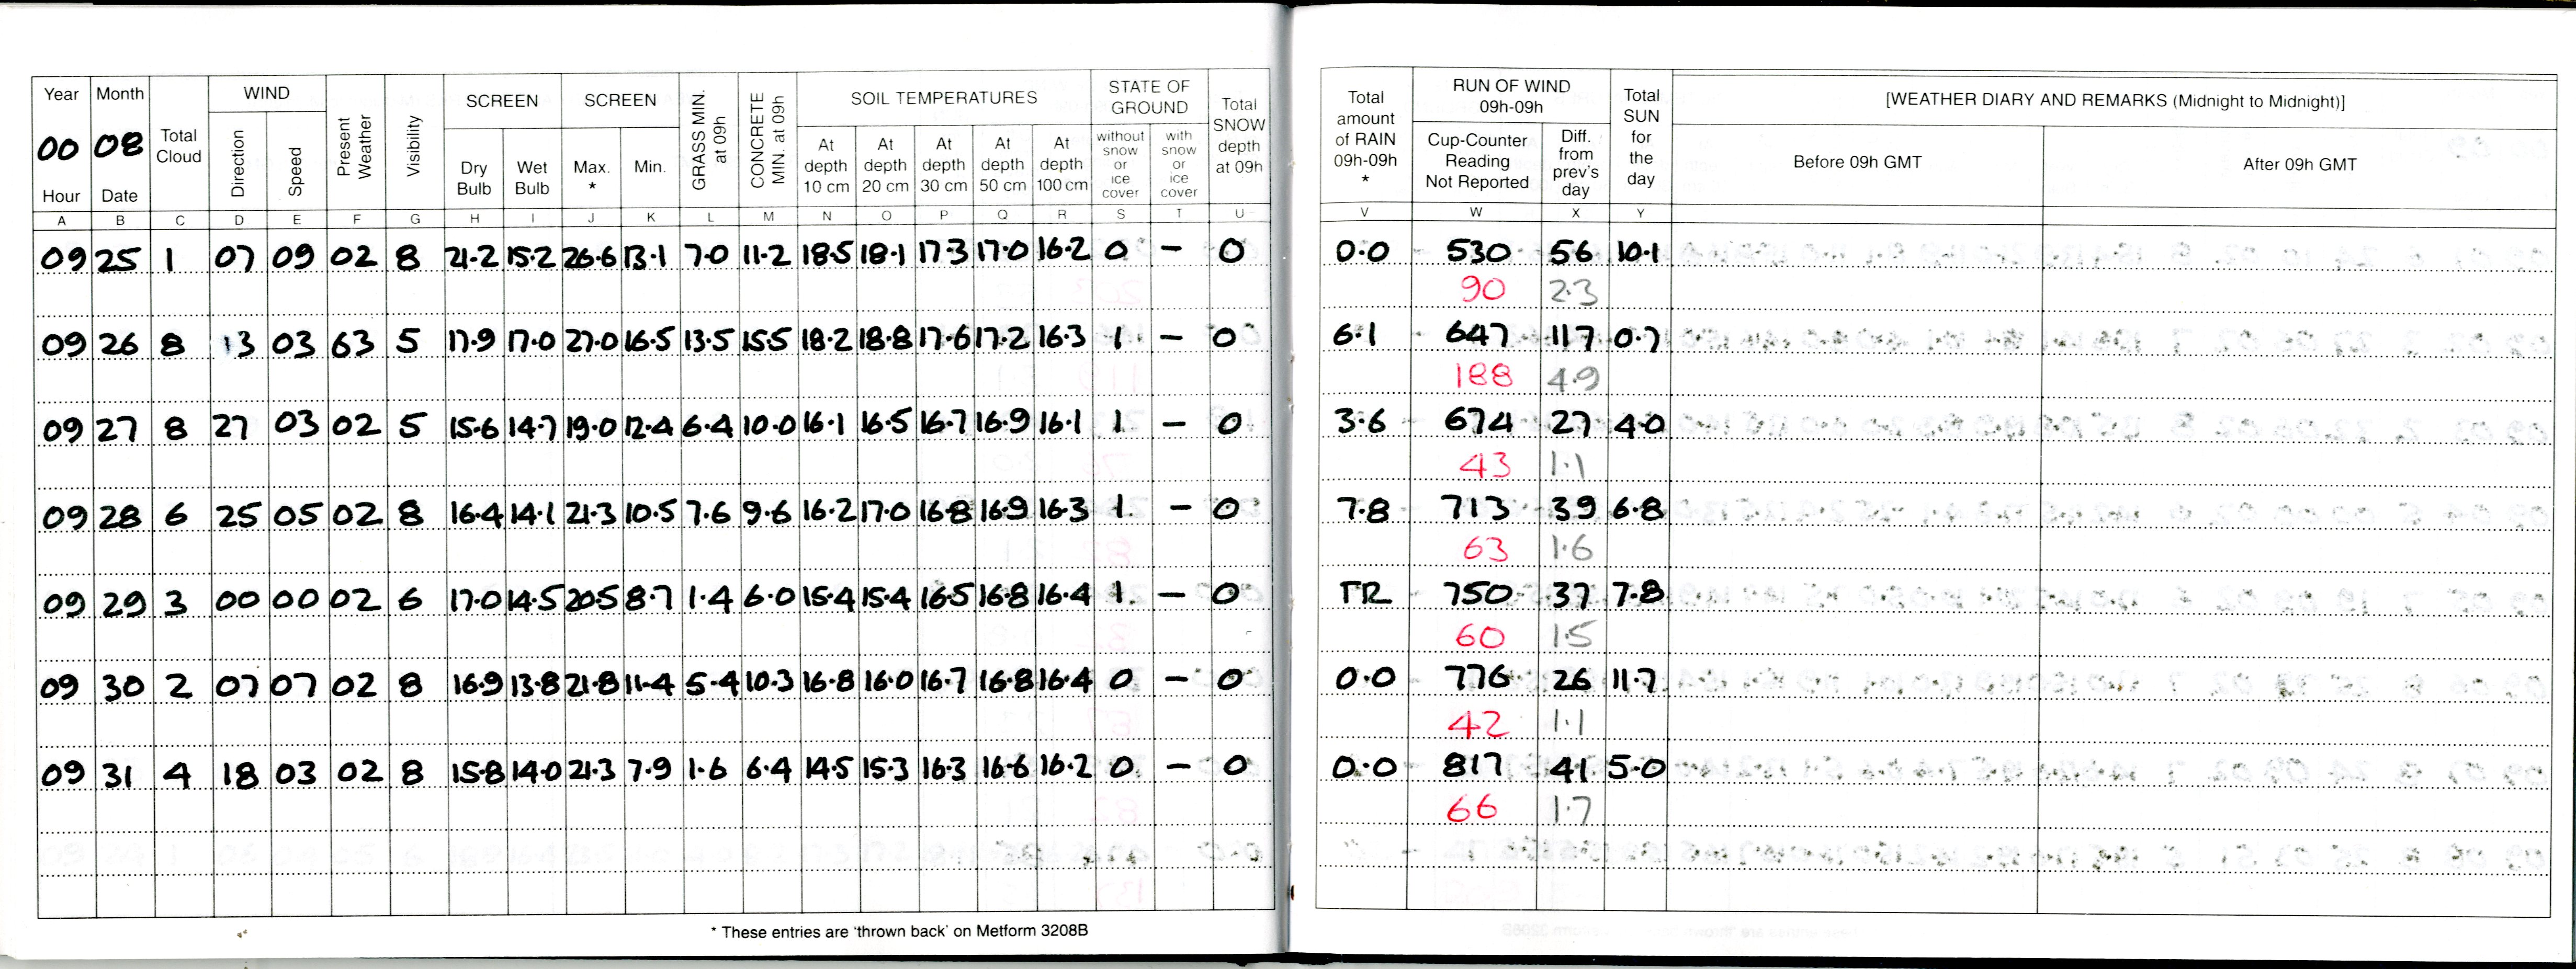 Year Month Total Cloud WIND Present Weather Visibility SCREEN SCREEN GRASS MIN. at 09h CONCRETE MIN. at 09h SOIL TEMPERATURES STATE OF GROUND Total SNOW depth at 09h Total amount of RAIN 09h-09h * RUN OF WIND 09h-09h Total SUN for the day [WEATHER DIARY AND REMARKS (Midnight to Midnight)]
00 08 Direction Speed Dry Bulb Wet Bulb Max. * Min. At depth 10 cm At depth 20 cm At depth 30 cm At depth 50 cm At depth 100 cm without snow or ice cover with snow or ice cover Cup-Counter Reading Not Reported Diff. from prev's day Before 09h GMT After 09h GMT
Hour Date
A B C D E F G H I J K L M N O P Q R S T U V W X Y
09 25 1 07 09 02 8 21.2 15.2 26.6 13.1 7.0 11.2 18.5 18.1 17.3 17.0 16.2 0 – 0 0.0 530 56 10.1
90 2.3
09 26 8 13 03 63 5 17.9 17.0 27.0 16.5 13.5 15.5 18.2 18.8 17.6 17.2 16.3 1 – 0 6.1 647 117 0.7
188 4.9
09 27 8 27 03 02 5 15.6 14.7 19.0 12.4 6.4 10.0 16.1 16.5 16.7 16.9 16.1 1 – 0 3.6 674 27 4.0
43 1.1
09 28 6 25 05 02 8 16.4 14.1 21.3 10.5 7.6 9.6 16.2 17.0 16.8 16.9 16.3 1 – 0 7.8 713 39 6.8
63 1.6
09 29 3 00 00 02 6 17.0 14.5 20.5 8.7 1.4 6.0 15.4 15.4 16.5 16.8 16.4 1 – 0 TR 750 37 7.8
60 1.5
09 30 2 07 07 02 8 16.9 13.8 21.8 11.4 5.4 10.3 16.8 16.0 16.7 16.8 16.4 0 – 0 0.0 776 26 11.7
42 1.1
09 31 4 18 03 02 8 15.8 14.0 21.3 7.9 1.6 6.4 14.5 15.3 16.3 16.6 16.2 0 – 0 0.0 817 41 5.0
66 1.7
* These entries are 'thrown back' on Metform 3208B